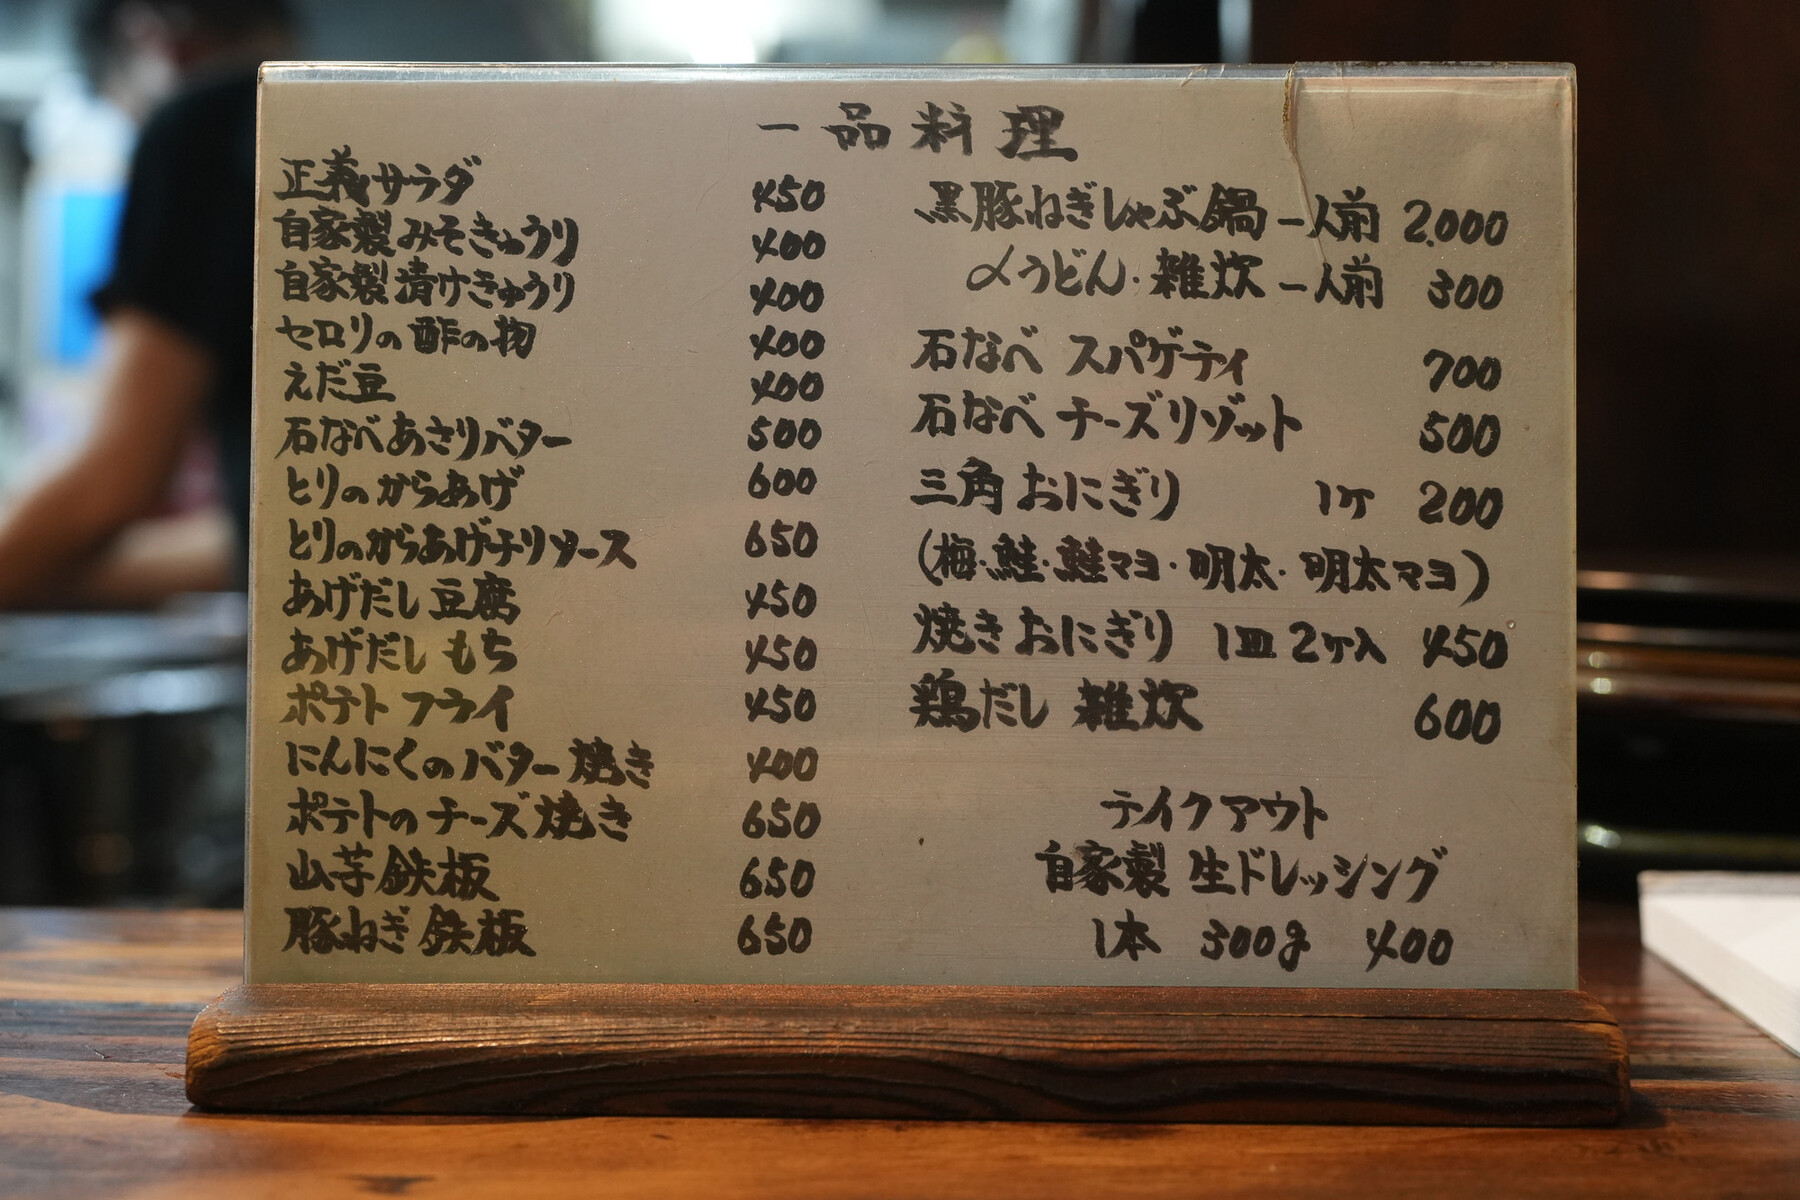 一品料理
正義サラダ 450
自家製みそきゅうり 400
自家製漬けきゅうり 400
セロリの酢の物 400
えだ豆 400
石なべあさりバター 500
とりのからあげ 600
とりのからあげチリソース 650
あげだし豆腐 450
あげだしもち 450
ポテトフライ 450
にんにくのバター焼き 400
ポテトのチーズ焼き 650
山芋鉄板 650
豚ねぎ鉄板 650
黒豚ねぎしゃぶ鍋 一人前 2,000
〆うどん・雑炊 一人前 300
石なべ スパゲティ 700
石なべ チーズリゾット 500
三角おにぎり 1ケ 200
(梅・鮭・鮭マヨ・明太・明太マヨ)
焼きおにぎり 1皿2ケ入 450
鶏だし 雑炊 600
テイクアウト
自家製 生ドレッシング
1本 300g 400